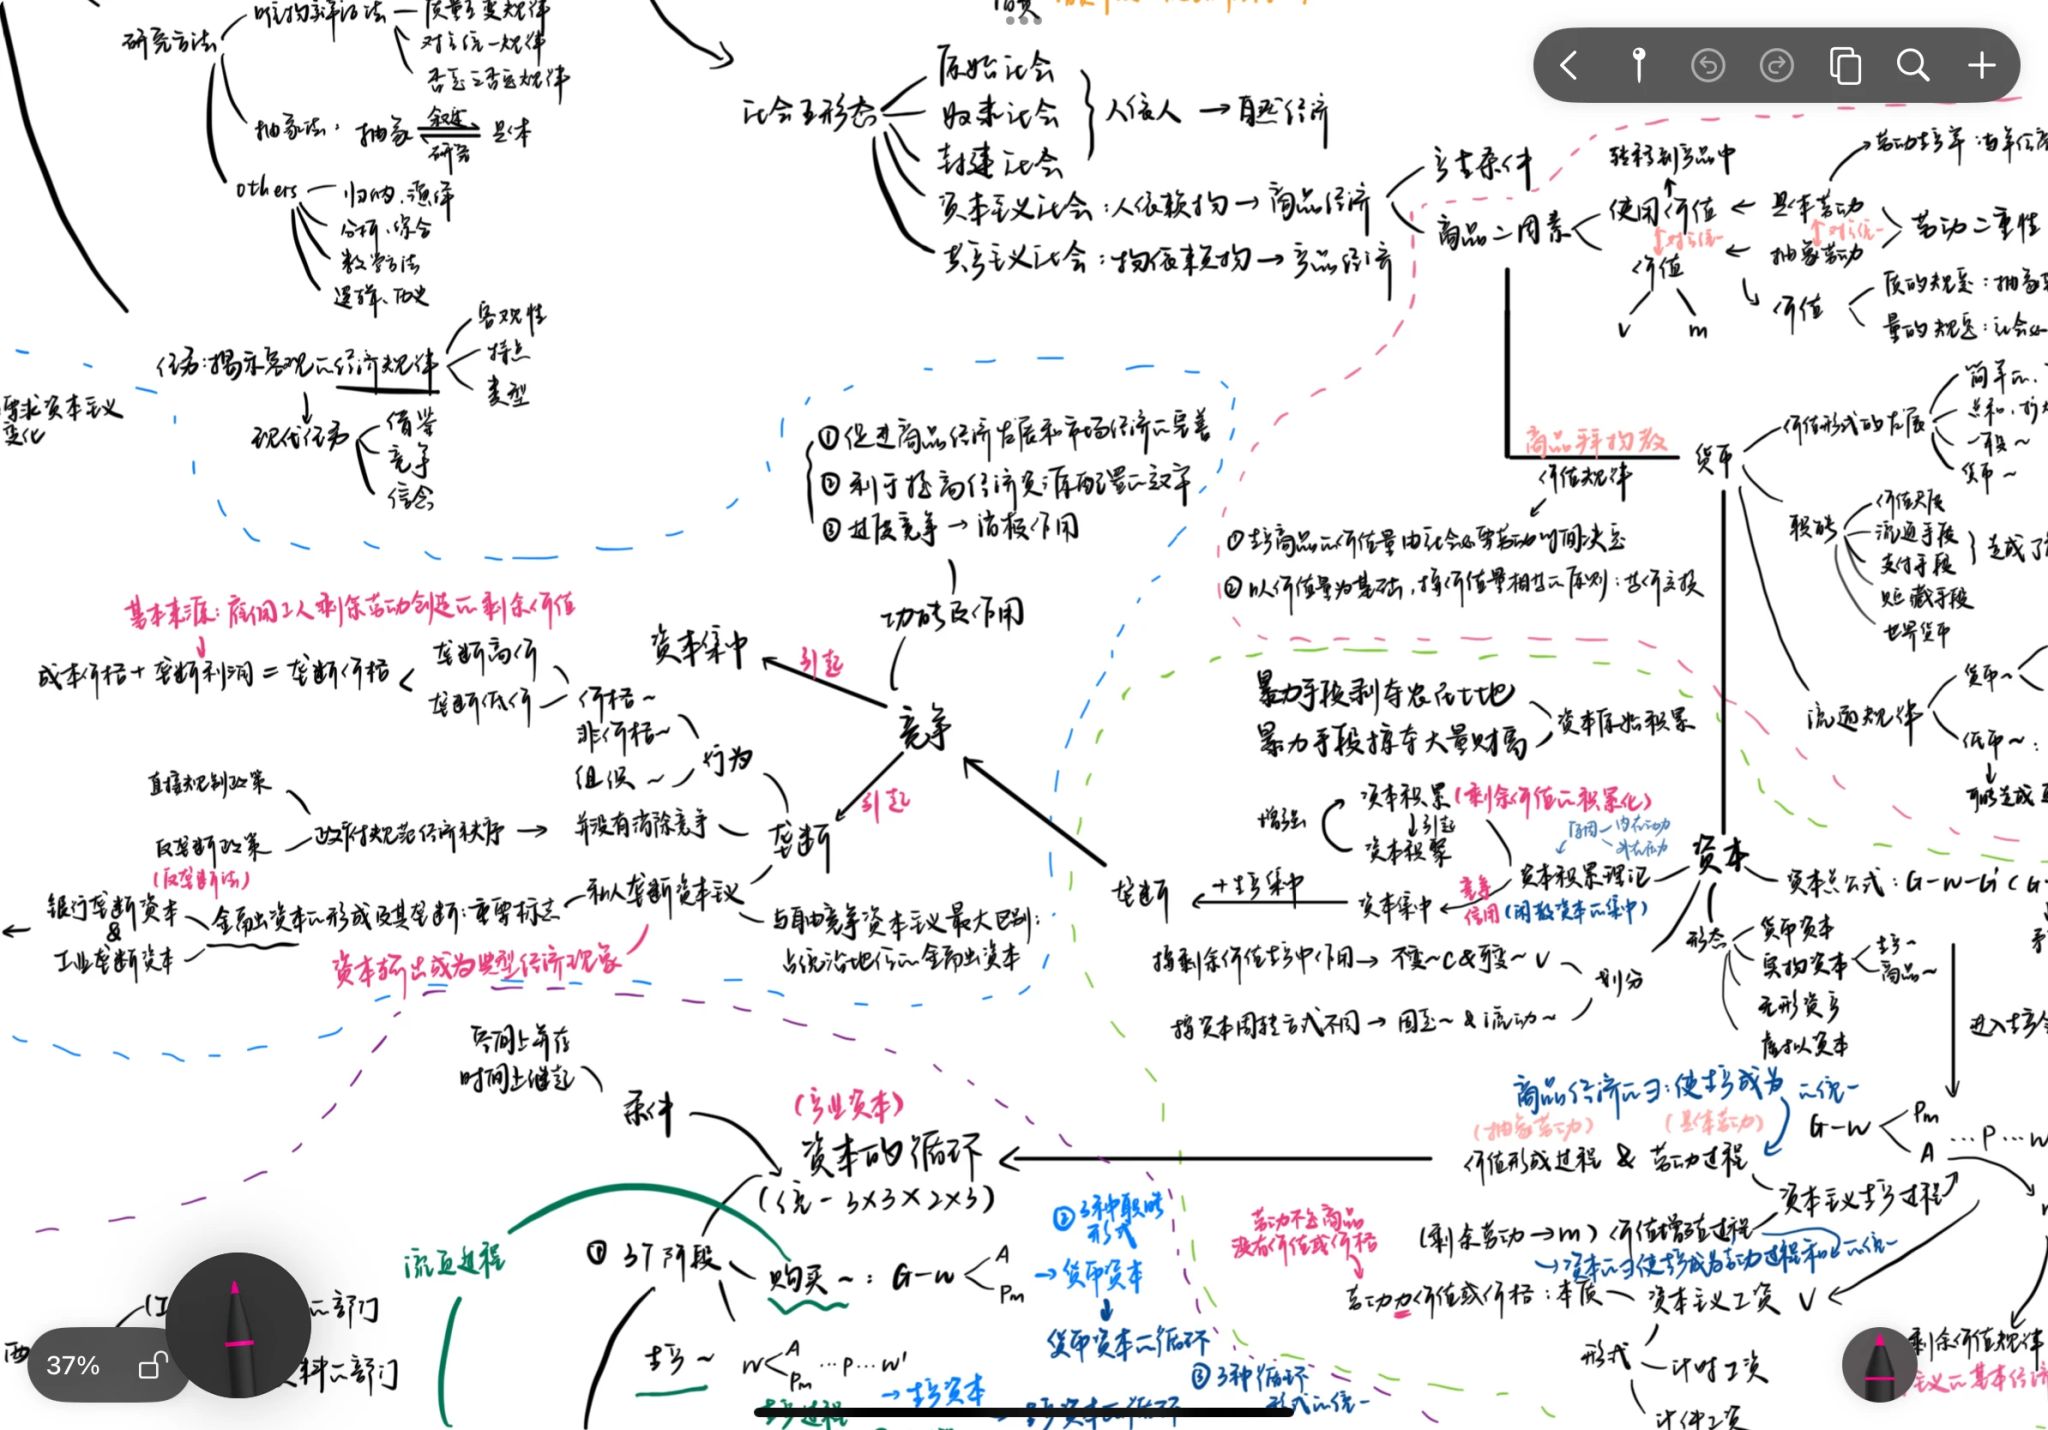 研究方法
唯物辩证法
质量互变规律
对立统一规律
否定之否定规律
抽象法：抽象
叙述
研究
具体
others
归纳、演绎
分析、综合
数学方法
逻辑、历史
任务：揭示客观的经济规律
客观性
特点
类型
现代任务
借鉴
竞争
信念
需求资本主义
变化
社会五形态
原始社会
奴隶社会
封建社会
人依人 → 自然经济
资本主义社会：人依赖物 → 商品经济
共产主义社会：物依赖物 → 产品经济
产生条件
商品二因素
转移到产品中
使用价值 ← 具体劳动
对立统一
对立统一
价值 ← 抽象劳动
劳动二重性
v
m
价值
质的规定：抽象
量的规定：社会必
商品拜物教
价值规律
货币
①生产商品的价值量由社会必要劳动时间决定
②以价值量为基础，按价值量相等的原则：等价交换
价值形式的发展
简单的、
一般~
货币~
职能
价值尺度
流通手段
支付手段
贮藏手段
世界货币
造成了
流通规律
货币~
纸币~：
①促进商品经济发展和市场经济的完善
②利于提高经济资源配置的效率
③过度竞争 → 消极作用
功能及作用
竞争
引起
资本集中
引起
垄断
基本来源：雇佣工人剩余劳动创造的剩余价值
成本价格+垄断利润=垄断价格
垄断高价
垄断低价
价格~
非价格~
组织~
行为
直接规制政策
反垄断政策
(反垄断法)
政府规范经济秩序 →
并没有消除竞争
私人垄断资本主义
金融资本的形成及其垄断：重要标志
银行垄断资本
&
工业垄断资本
资本输出成为典型经济现象
与自由竞争资本主义最大区别：
占统治地位的金融资本
暴力手段剥夺农民土地
暴力手段掠夺大量财富
资本原始积累
增强
资本积累(剩余价值的积累化)
引起
资本积聚
原因
内在动力
外在压力
资本积累理论
竞争
信用
(闲散资本的集中)
资本集中
+生产集中
垄断
资本
资本总公式：G-W-G'(G-
形态
货币资本
实物资本
生产~
商品~
无形资产
虚拟资本
按剩余价值生产中作用 → 不变~c&可变~v
按资本周转方式不同 → 固定~&流动~
划分
进入生产
空间上并存
时间上继起
条件
(产业资本)
资本的循环
(统一3×3×2×3)
流通过程
①3个阶段
购买~：G-W
A
Pm
生产~
W
A
Pm
…P…W'
→生产资本
生产过程
②3种职能
形式
→货币资本
货币资本的循环
生产资本的循环
③3种循环
形式的统一
商品经济的ヨ：使生产成为
的统一
(抽象劳动)
(具体劳动)
价值形成过程&劳动过程
G-W
Pm
A
…P…W
资本主义生产过程
(剩余劳动→m)价值增殖过程
→资本的ヨ使生产成为劳动过程和
的统一
劳动不是商品
没有价值或价格
劳动力价值或价格：本质
资本主义工资 V
形式
计时工资
计件工资
剩余价值规律
主义的基本经济
的部门
料的部门
37%